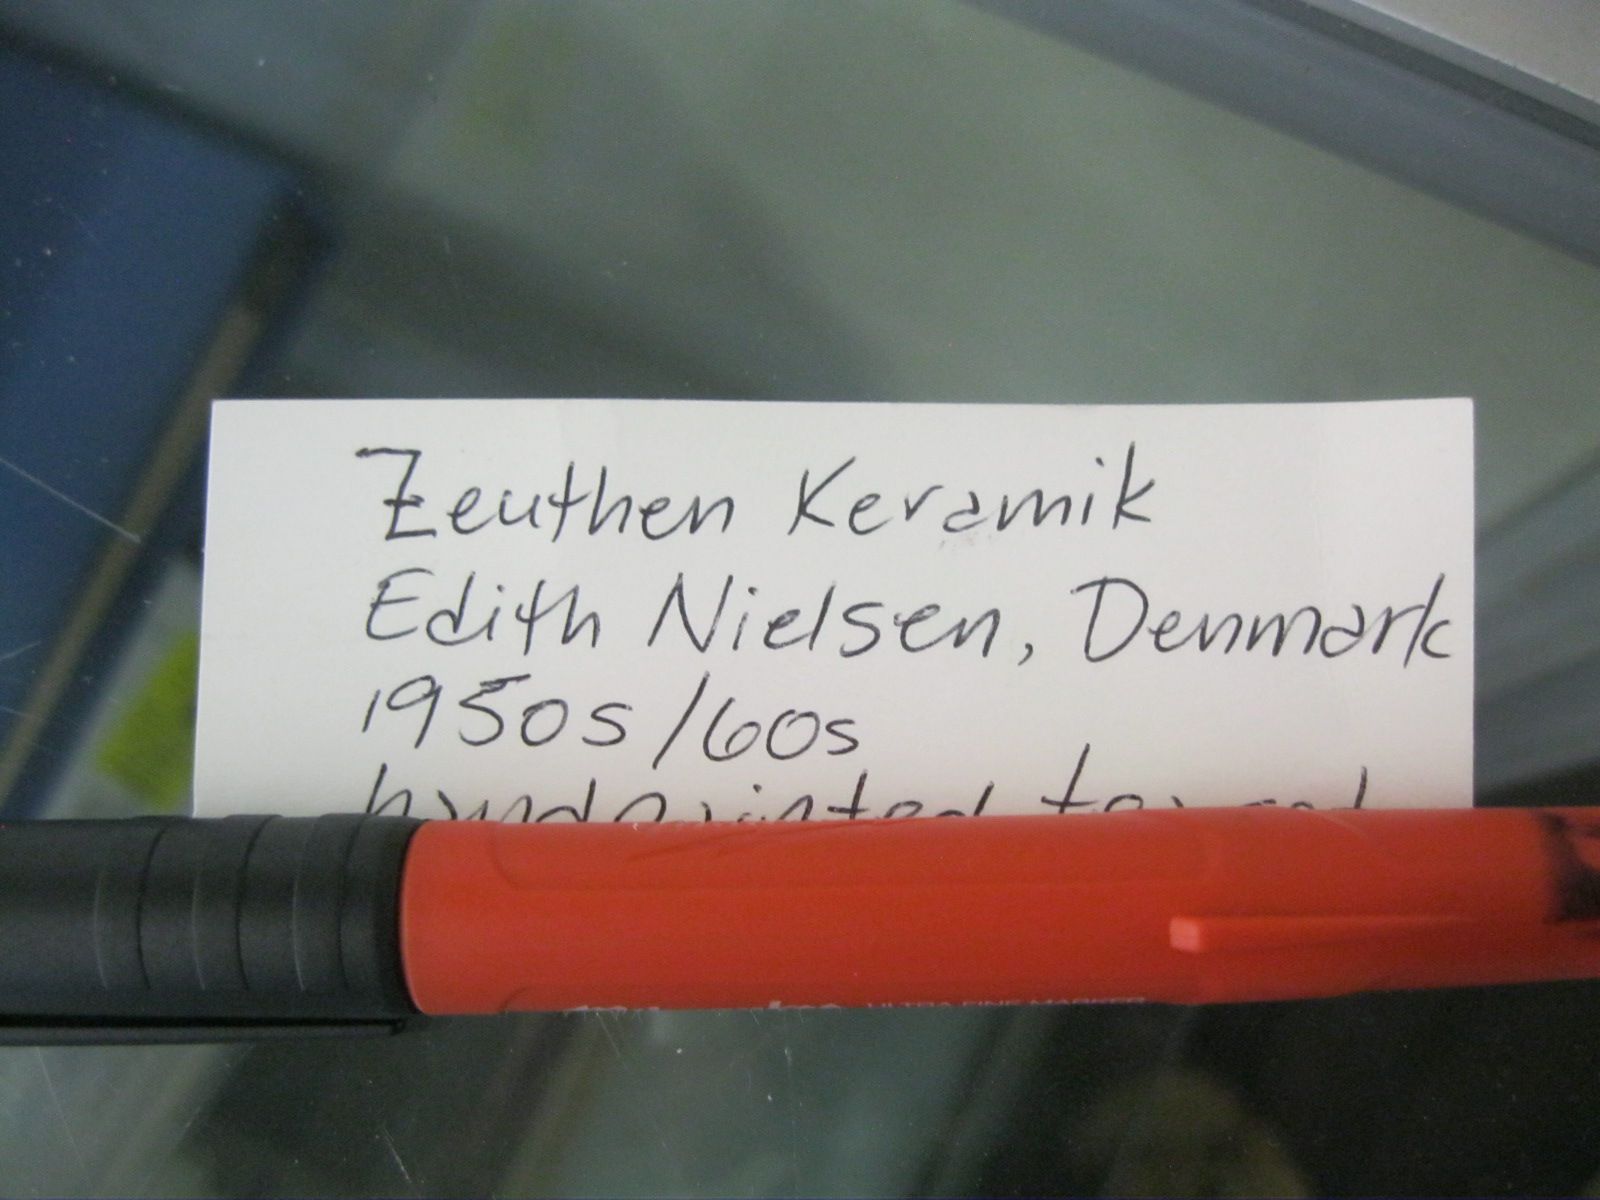 Zeuthen Keramik
Edith Nielsen, Denmark
1950s/60s
ULTRA FINE MARKER